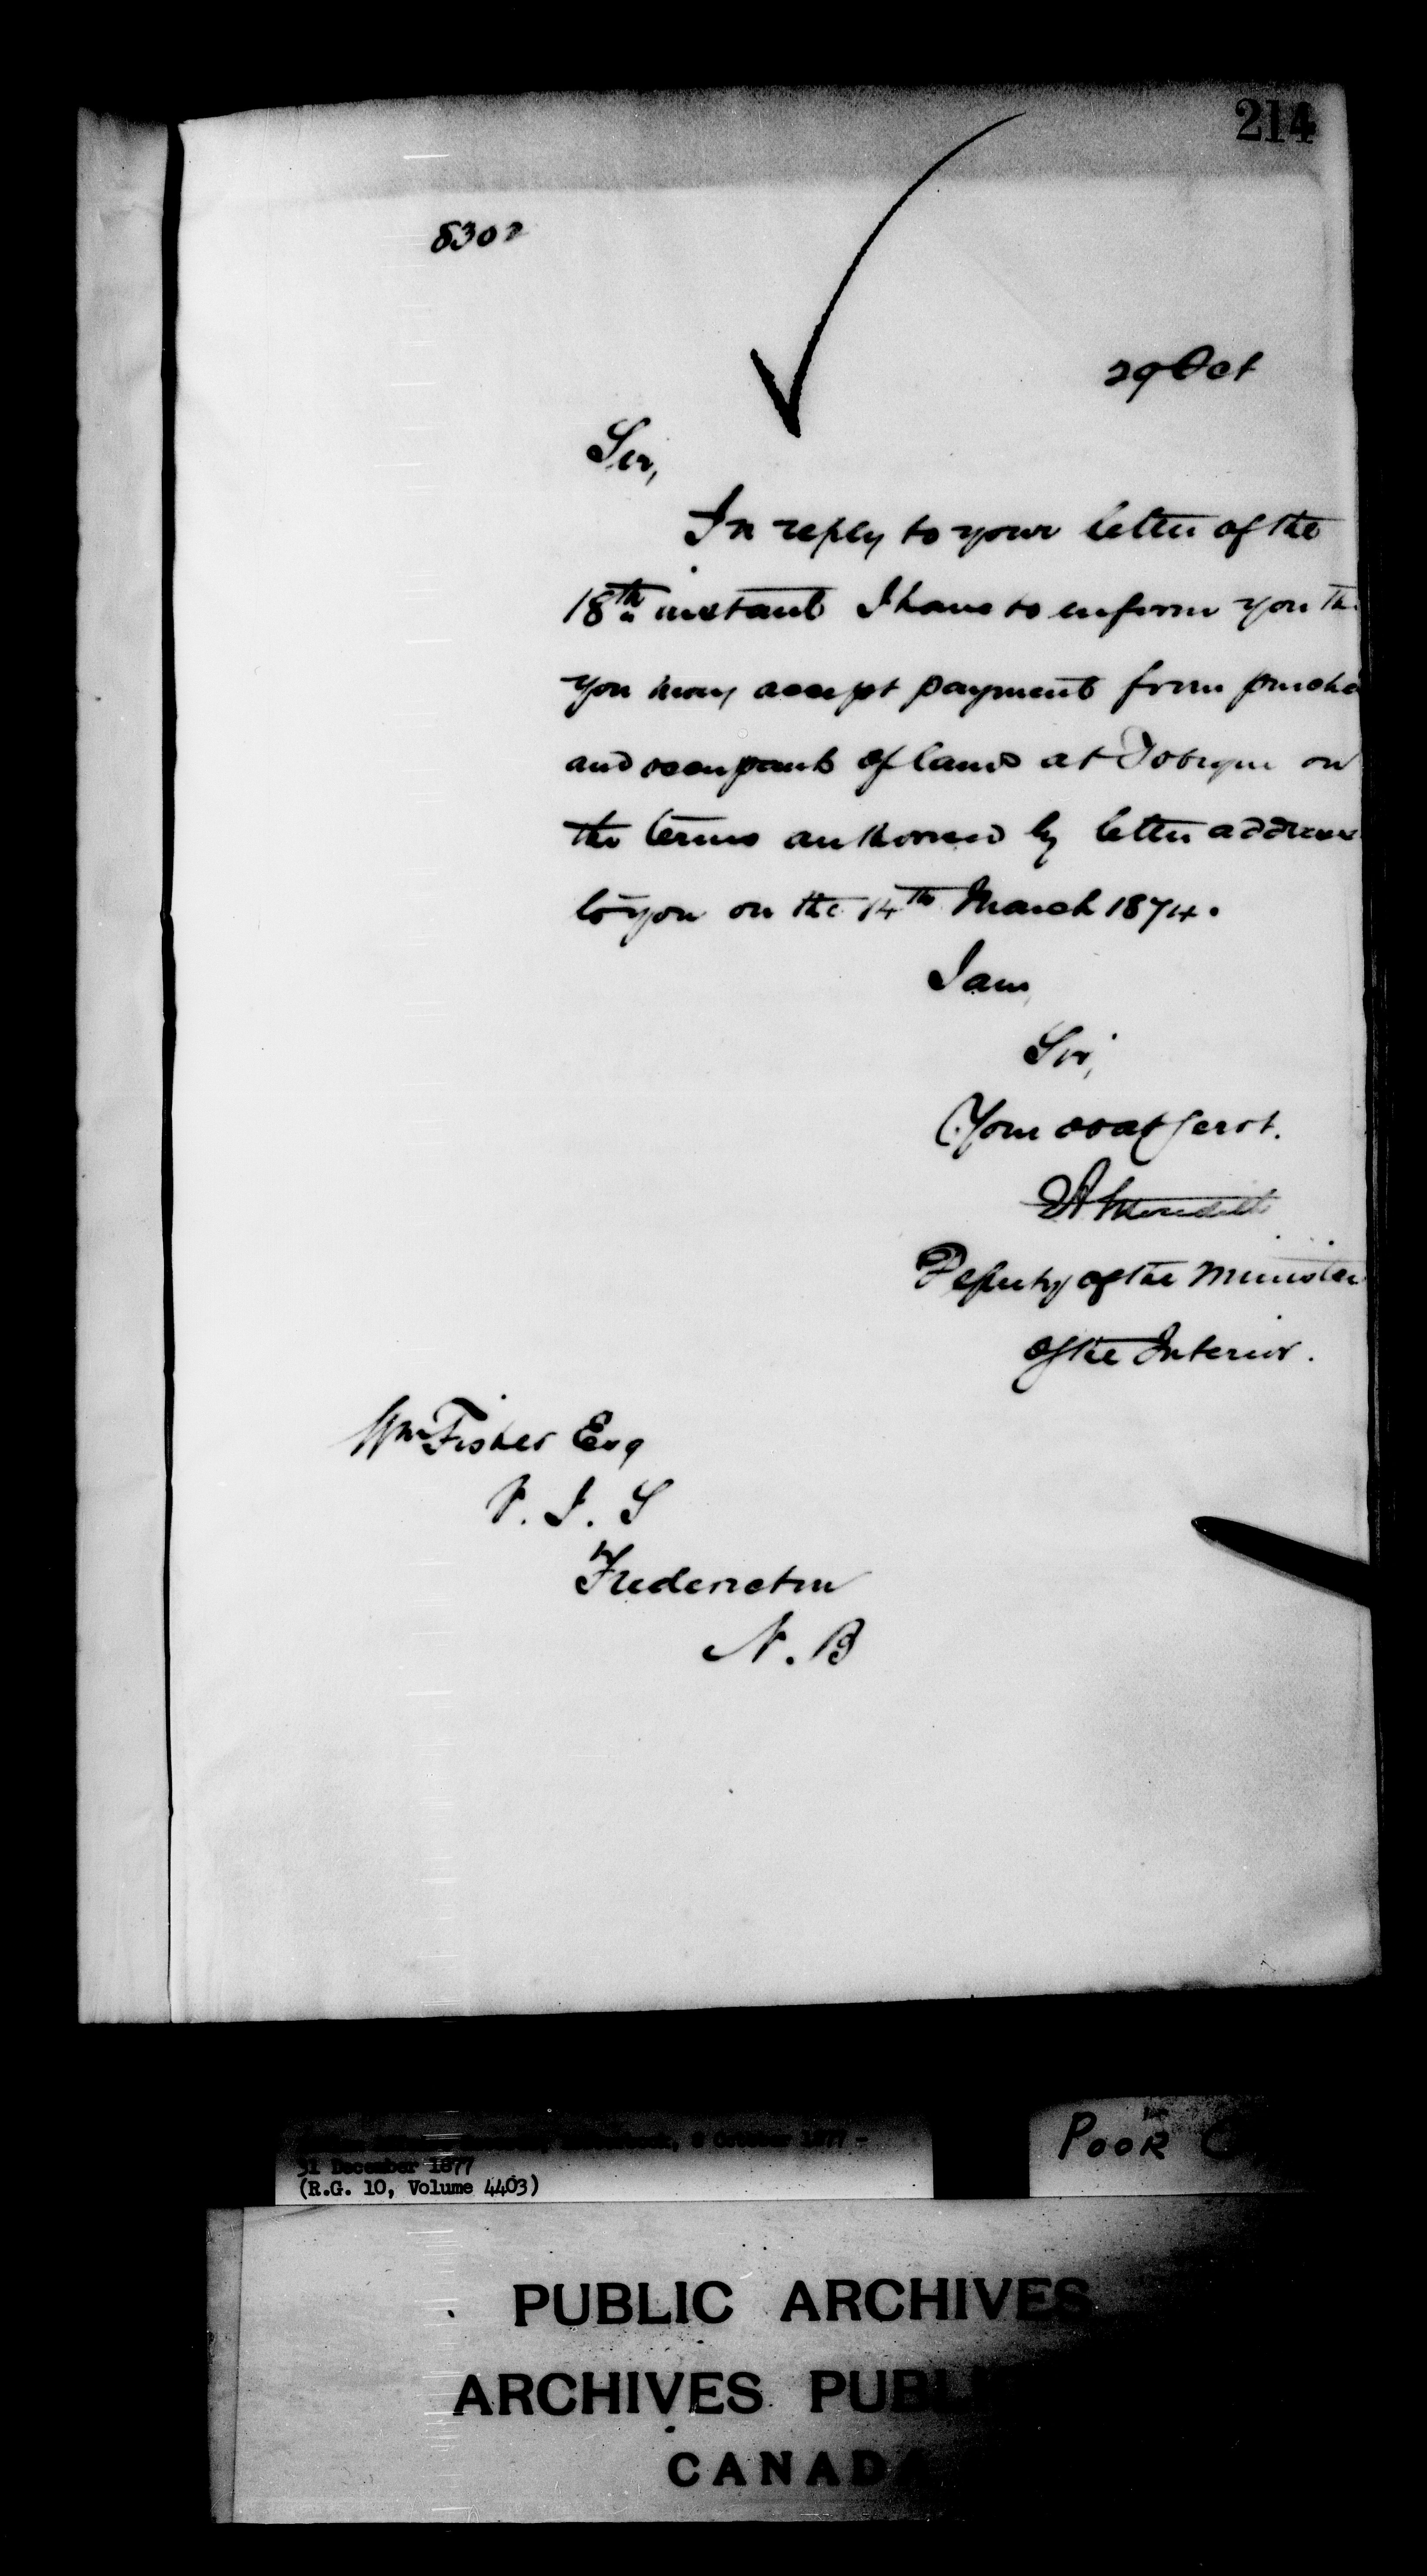 214
8302
29 Oct
Sir,
In reply to your letter of the
18th instant I have to inform you th
you may accept payment from purcha
and occupants of lands at Tobique on
the terms authorised by letter address
to you on the 14th March 1874.
I am,
Sir,
Your obdt servt.
EA Meredith
Deputy of the Minister
of the Interior.
Wm Fisher Esq
V. I. S
Fredericton
N. B
October 1877 -
31 December 1877
(R.G. 10, Volume 4403)
POOR
PUBLIC ARCHIVES
ARCHIVES PUBLI
CANADA